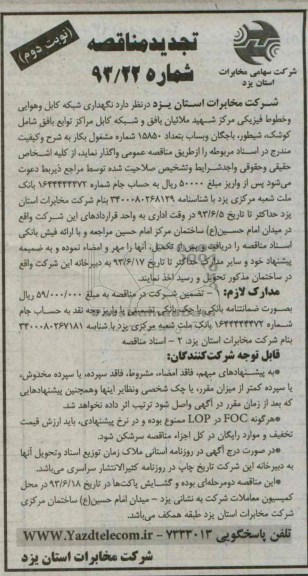 (نوبت دوم)
تجدیدمناقصه
شماره ۹۳/۲۲
شرکت سهامی مخابرات
استان یزد
شرکت مخابرات استان یزد درنظر دارد نگهداری شبکه کابل وهوایی
وخطوط فیزیکی مرکز شهید ملائیان بافق و شبکه کابل مراکز توابع بافق شامل
کوشک، شیطور، باجگان وبساب بتعداد ۱۵۸۵۰ شماره مشغول بکار به شرح وکیفیت
مندرج در اسناد مربوطه را ازطریق مناقصه عمومی واگذار نماید، از کلیه اشخاص
حقیقی وحقوقی واجدشرایط وتشخیص صلاحیت شده توسط مراجع ذیربط دعوت
می‌شود پس از واریز مبلغ ۵۰۰۰۰ ریال به حساب جام شماره ۱۶۴۴۴۴۴۲۷۲ بانک
ملت شعبه مرکزی یزد با شناسنامه ۳۴۰۰۰۸۰۲۶۸۱۳۹ بنام شرکت مخابرات استان
یزد حداکثر تا تاریخ ۹۳/۶/۵ در وقت اداری به واحد قراردادهای این شرکت واقع
در میدان امام حسین(ع) ساختمان مرکز امام حسین مراجعه و با ارائه فیش بانکی
اسناد مناقصه را دریافت و پس از تکمیل، آنها را مهر و امضاء نموده و به ضمیمه
پیشنهاد خود و سایر مدارک حداکثر تا تاریخ ۹۳/۶/۱۷ به دبیرخانه این شرکت واقع
در ساختمان مذکور تحویل و رسید اخذ نمایند.
مدارک لازم: ۱- تضمین شرکت در مناقصه به مبلغ ۵۹/۰۰۰/۰۰۰ ریال
بصورت ضمانتنامه بانکی یا چک بانکی تضمینی یا واریز وجه نقد به حساب جام
شماره ۱۶۴۴۴۴۴۲۷۲ بانک ملت شعبه مرکزی یزد با شناسه ۳۴۰۰۰۸۰۲۶۷۱۸۱
بنام شرکت مخابرات استان یزد. ۲ - اسناد مناقصه
قابل توجه شرکت‌کنندگان:
*به پیشنهادهای مبهم، فاقد امضاء، مشروط، فاقد سپرده، یا سپرده مخدوش،
یا سپرده کمتر از میزان مقرر، یا چک شخصی ونظایر اینها وهمچنین پیشنهادهایی
که بعد از زمان مقرر در آگهی واصل شود ترتیب اثر داده نخواهد شد.
*هرگونه FOC در LOP ممنوع بوده و در نرخ پیشنهادی، باید ارزش قیمت
تخفیف و موارد رایگان در کل اجزاء مناقصه سرشکن شود.
*در صورت درج آگهی در روزنامه استانی ملاک زمان توزیع اسناد وتحویل آنها
به دبیرخانه این شرکت تاریخ چاپ در روزنامه کثیرالانتشار سراسری می‌باشد.
*این مناقصه دومرحله‌ای بوده و گشایش پاکت‌ها در تاریخ ۹۳/۶/۱۸ در محل
کمیسیون معاملات شرکت به نشانی یزد – میدان امام حسین(ع) ساختمان مرکزی
شرکت مخابرات استان یزد طبقه همکف می‌باشد.
تلفن پاسخگویی ۷۲۳۳۰۱۳ – WWW.Yazdtelecom.ir
شرکت مخابرات استان یزد